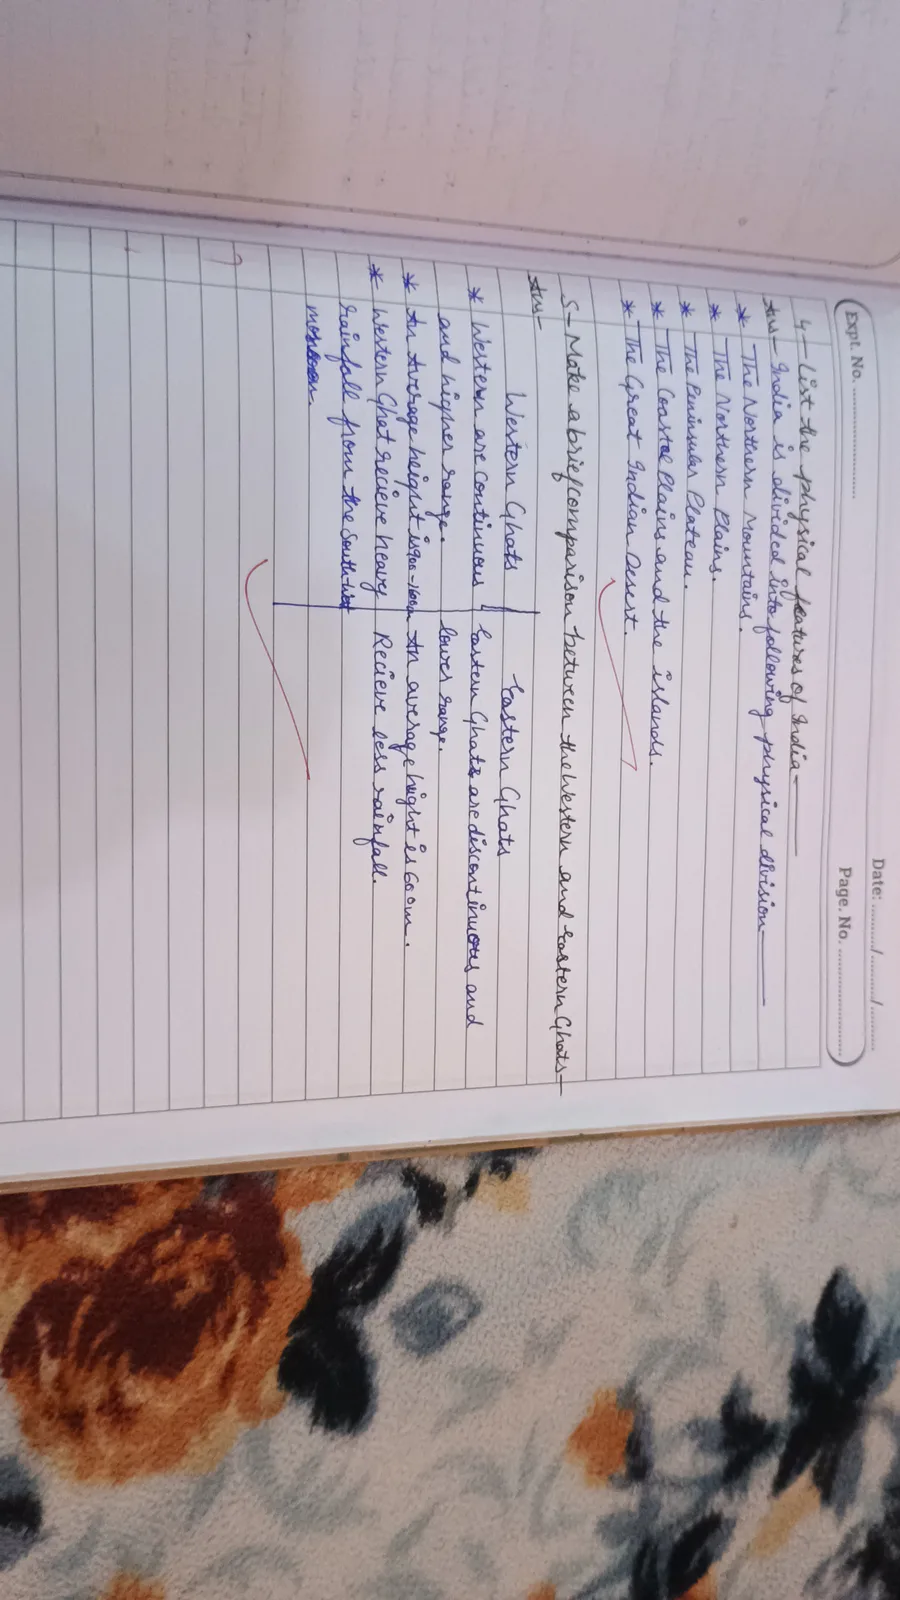 Date: ........./........./.........
Expt. No. .............................. Page. No. ..............................
4 - List the physical features of India -
Ans - India is divided into following physical division -
* The Northern Mountains.
* The Northern Plains.
* The Peninsular Plateau.
* The Coastal Plains and the islands.
* The Great Indian Desert.
5 - Make a brief comparison between the Western and Eastern Ghats -
Ans -
Western Ghats Eastern Ghats
* Western are continuous Eastern Ghats are discontinuous and
and higher range. lower range.
* An Average height is 900-1600m An average height is 600m.
* Western Ghat recieve heavy Recieve less rainfall.
rainfall from the South West